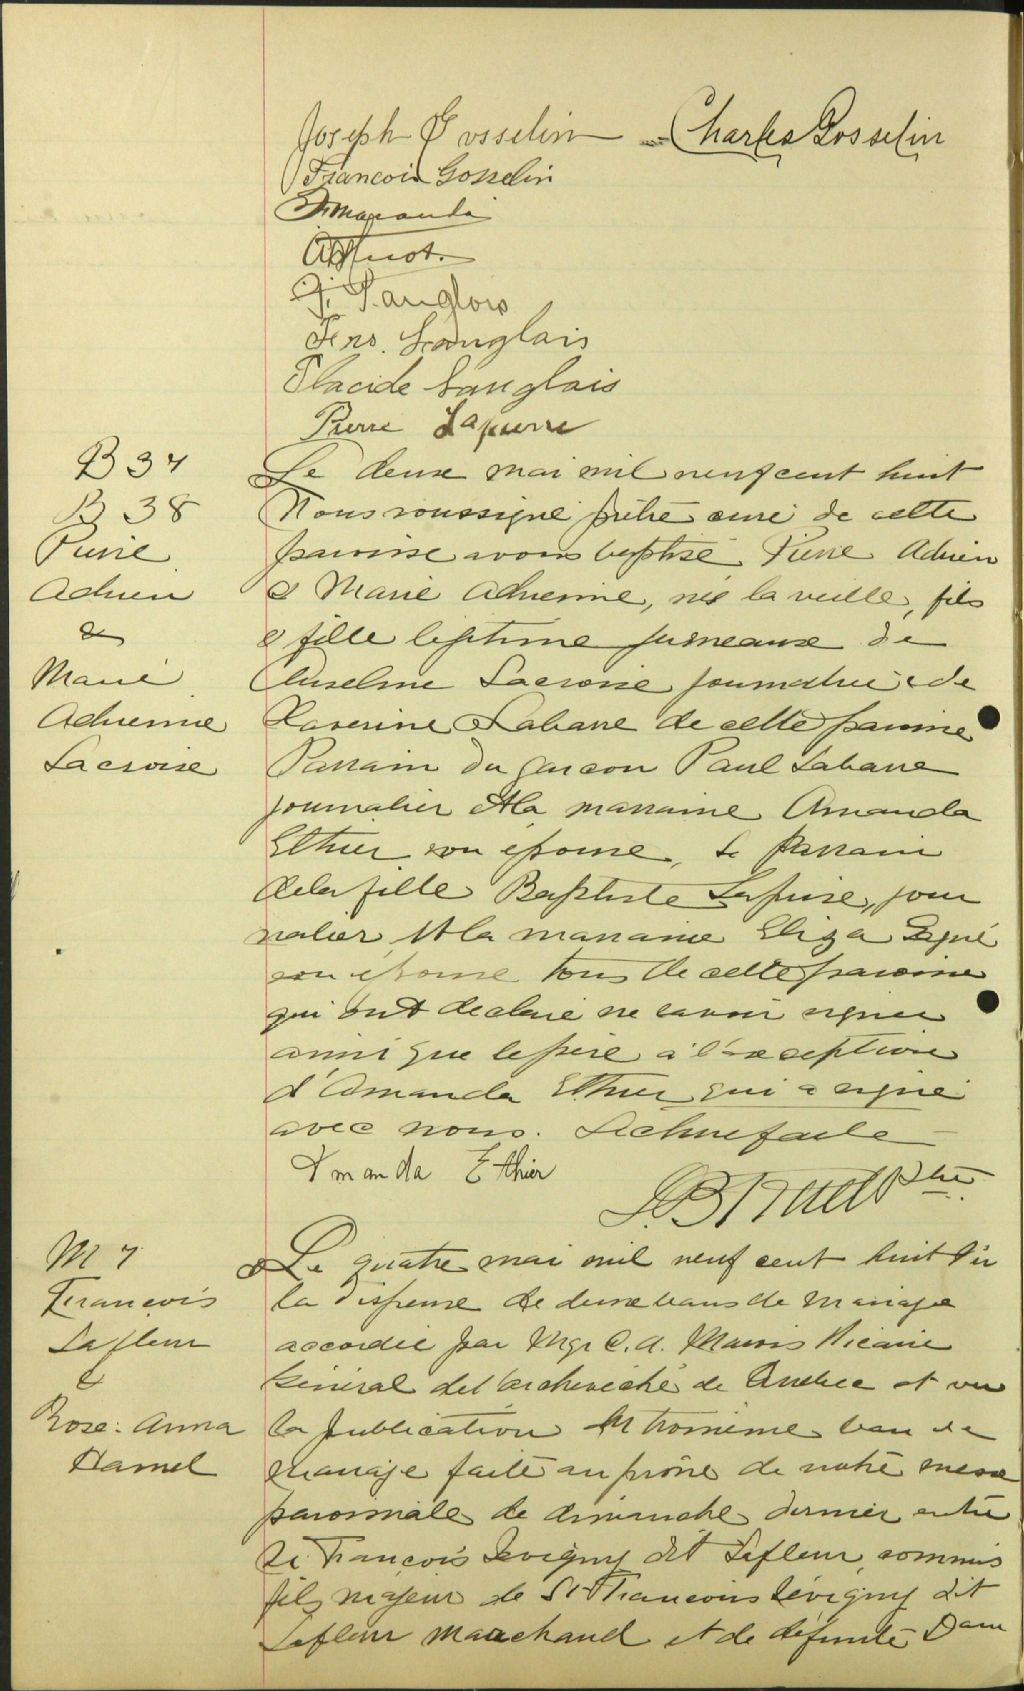 Joseph Gosselin Charles Gosselin
Francois Gosselin
J. Langlois
Frs. Langlais
Placide Langlais
Pierre Lapierre
B 37
B 38
Pierre
Adrien
&
Marie
Adrienne
Lacroix
Le deux mai mil neuf cent huit
Nous soussigné prêtre curé de cette
paroisse avons baptisé Pierre Adrien
& Marie Adrienne, nés la veille, fils
& fille légitime jumeaux de
Anselme Lacroix journalier & de
Labarre de cette paroisse
Parrain du garçon Paul Labarre
journalier et la marraine Amanda
Ethier son épouse, le parrain
de la fille Baptiste jour
nalier et la marraine Eliza
son épouse tous de cette paroisse
qui ont déclaré ne savoir signer
ainsi que le père à l'exception
d'Amanda Ethier qui a signé
avec nous. Lecture faite
Amanda Ethier
J.B. Ruel Ptre
M 7
François
Lafleur
&
Rose-Anna
Hamel
Le quatre mai mil neuf cent huit Vu
la dispense de deux bans de mariage
accordée par Mgr C. A. Marois Vicaire
Général de l'archevêché de Québec et vu
la publication du troisième ban de
mariage faite au prône de notre messe
paroissiale de dimanche dernier entre
Sr François Sévigny dit Lafleur, commis
fils majeur de Sr François Sévigny dit
Lafleur marchand et de défunte Dame